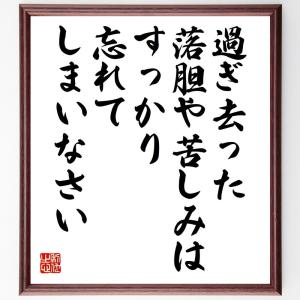 過ぎ去った
落胆や苦しみは
すっかり
忘れて
しまいなさい